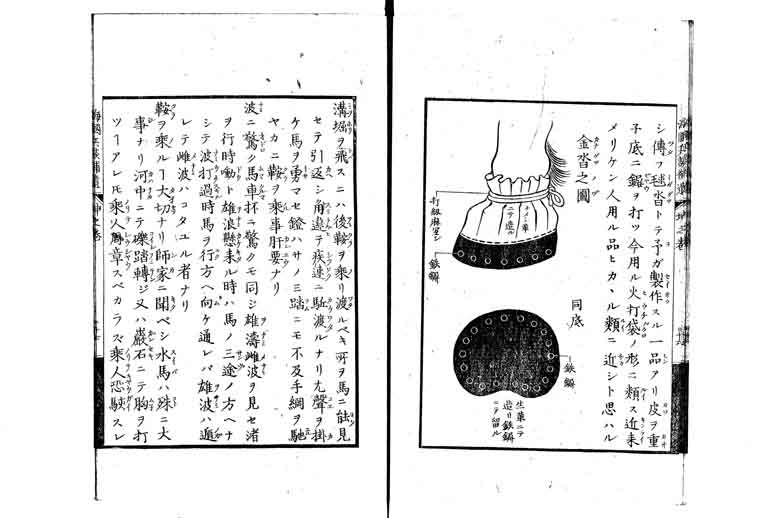 シ傳フ毬沓トテ予ガ製作スル一品アリ皮ヲ重
子底ニ鋲ヲ打ツ今用ル火打袋ノ形ニ類ス近来
メリケン人用ル品ヒカヽル類ニ近シト思ハル
金沓之圖
カナグツノヅ
打紐麻ヨシ
ナメシ革ニテ造ル
鉄鋲
同底
鉄鋲
生革ニテ
造リ鉄鋲
ニテ留ル
溝堀ヲ飛スニハ後鞍ヲ乗リ渡ルベキ所ヲ馬ニ能見
セテ引返シ角違テ疾速ニ駈渡ルナリ尤聲ヲ掛
ケ馬ヲ勇マセ鐙ハサノミ踏ニモ不及手綱ヲ馳
ヤカニ鞍ヲ乗事肝要ナリ
波ニ驚ク馬車抔ニ驚クモ同シ雄濤雌波ヲ見セ渚
ヲ行時噛ト雄浪懸来ル時ハ馬ノ三途ノ方ヘナ
シテ波打過時馬ヲ行方ヘ向ケ通レバ雄波ハ遁
レテ雌波ハコタユル者ナリ
鞍ヲ乗ルヿ大切ナリ師家ニ聞ベシ水馬ハ殊ニ大
事ナリ河中ニテ礫踏轉ジ又ハ巌石ニテ胸ヲ打
ツヿアレモ乗人周章スベカラズ乗人恐駭スレ